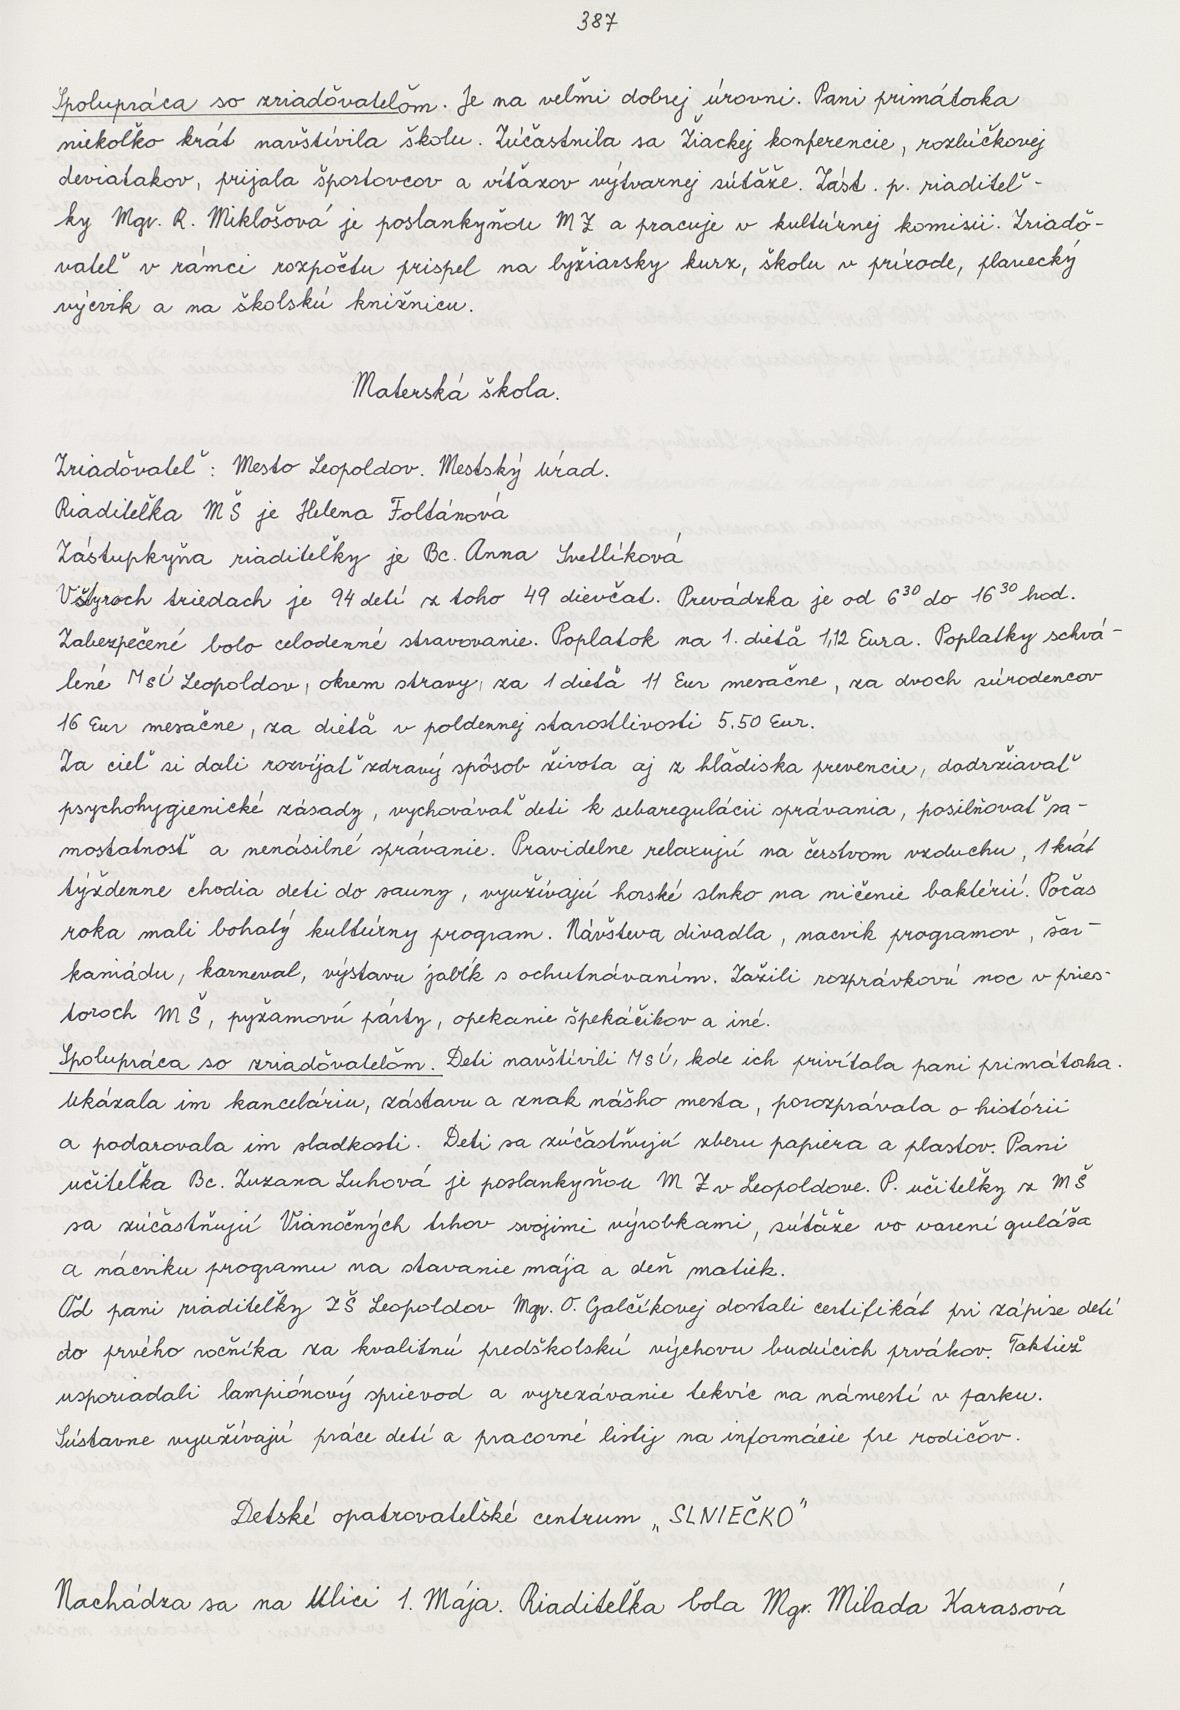 387
Spolupráca so zriaďovateľom. Je na veľmi dobrej úrovni. Pani primátorka
niekoľko krát navštívila školu. Zúčastnila sa Žiackej konferencie, rozlúčkovej
deviatakov, prijala športovcov a víťazov výtvarnej súťaže. Zást. p. riaditeľ-
ky Mgr. R. Miklošová je poslankyňou MZ a pracuje v kultúrnej komisii. Zriaďo-
vateľ v rámci rozpočtu prispel na lyžiarsky kurz, školu v prírode, plavecký
výcvik a na školskú knižnicu.
Materská škola.
Zriaďovateľ: Mesto Leopoldov. Mestský úrad.
Riaditeľka MŠ je Helena Foltánová
Zástupkyňa riaditeľky je Bc. Anna Svetlíková
V štyroch triedach je 94 detí z toho 49 dievčat. Prevádzka je od 6³⁰ do 16³⁰ hod.
Zabezpečené bolo celodenné stravovanie. Poplatok na 1. dieťa 1,12 Eura. Poplatky schvá-
lené MsÚ Leopoldov, okrem stravy, za 1 dieťa 11 Eur mesačne, za dvoch súrodencov
16 Eur mesačne, za dieťa v poldennej starostlivosti 5.50 Eur.
Za cieľ si dali rozvíjať zdravý spôsob života aj z hľadiska prevencie, dodržiavať
psychohygienické zásady, vychovávať deti k sebaregulácii správania, posilňovať sa-
mostatnosť a nenásilné správanie. Pravidelne relaxujú na čerstvom vzduchu, 1 krát
týždenne chodia deti do sauny, využívajú horské slnko na ničenie baktérií. Počas
roka mali bohatý kultúrny program. Návšteva divadla, nacvik programov, šar-
kaniádu, karneval, výstavu jabĺk s ochutnávaním. Zažili rozprávkovú noc v pries-
toroch MŠ, pyžamovú párty, opekanie špekáčikov a iné.
Spolupráca so zriaďovateľom. Deti navštívili MsÚ, kde ich privítala pani primátorka.
Ukázala im kanceláriu, zástavu a znak nášho mesta, porozprávala o histórii
a podarovala im sladkosti. Deti sa zúčastňujú zberu papiera a plastov. Pani
učiteľka Bc. Zuzana Luhová je poslankyňou MZ v Leopoldove. P. učiteľky z MŠ
sa zúčastňujú Vianočných trhov svojimi výrobkami, súťaže vo varení guláša
a nácviku programu na stavanie mája a deň matiek.
Od pani riaditeľky ZŠ Leopoldov Mgr. O. Galčíkovej dostali certifikát pri zápise detí
do prvého ročníka za kvalitnú predškolskú výchovu budúcich prvákov. Taktiež
usporiadali lampiónový sprievod a vyrezávanie tekvíc na námestí v parku.
Sústavne využívajú práce detí a pracovné listy na informácie pre rodičov.
Detské opatrovateľské centrum „SLNIEČKO"
Nachádza sa na Ulici 1. Mája. Riaditeľka bola Mgr. Milada Karasová